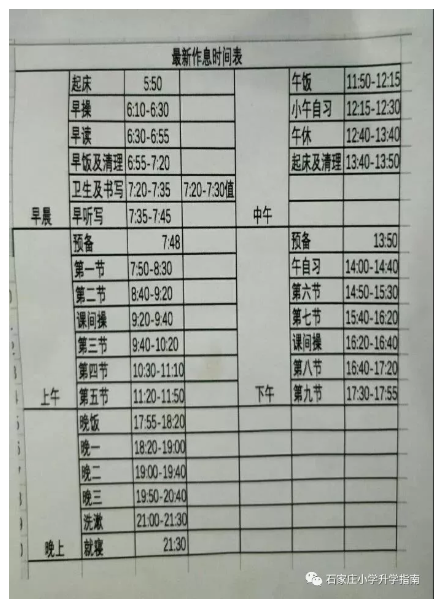 最新作息时间表
起床 5:50 午饭 11:50-12:15
早操 6:10-6:30 小午自习 12:15-12:30
早读 6:30-6:55 午休 12:40-13:40
早饭及清理 6:55-7:20 起床及清理 13:40-13:50
卫生及书写 7:20-7:35 7:20-7:30值
早晨 早听写 7:35-7:45 中午
预备 7:48 预备 13:50
第一节 7:50-8:30 午自习 14:00-14:40
第二节 8:40-9:20 第六节 14:50-15:30
课间操 9:20-9:40 第七节 15:40-16:20
第三节 9:40-10:20 课间操 16:20-16:40
第四节 10:30-11:10 第八节 16:40-17:20
上午 第五节 11:20-11:50 下午 第九节 17:30-17:55
晚饭 17:55-18:20
晚一 18:20-19:00
晚二 19:00-19:40
晚三 19:50-20:40
洗漱 21:00-21:30
晚上 就寝 21:30
石家庄小学升学指南